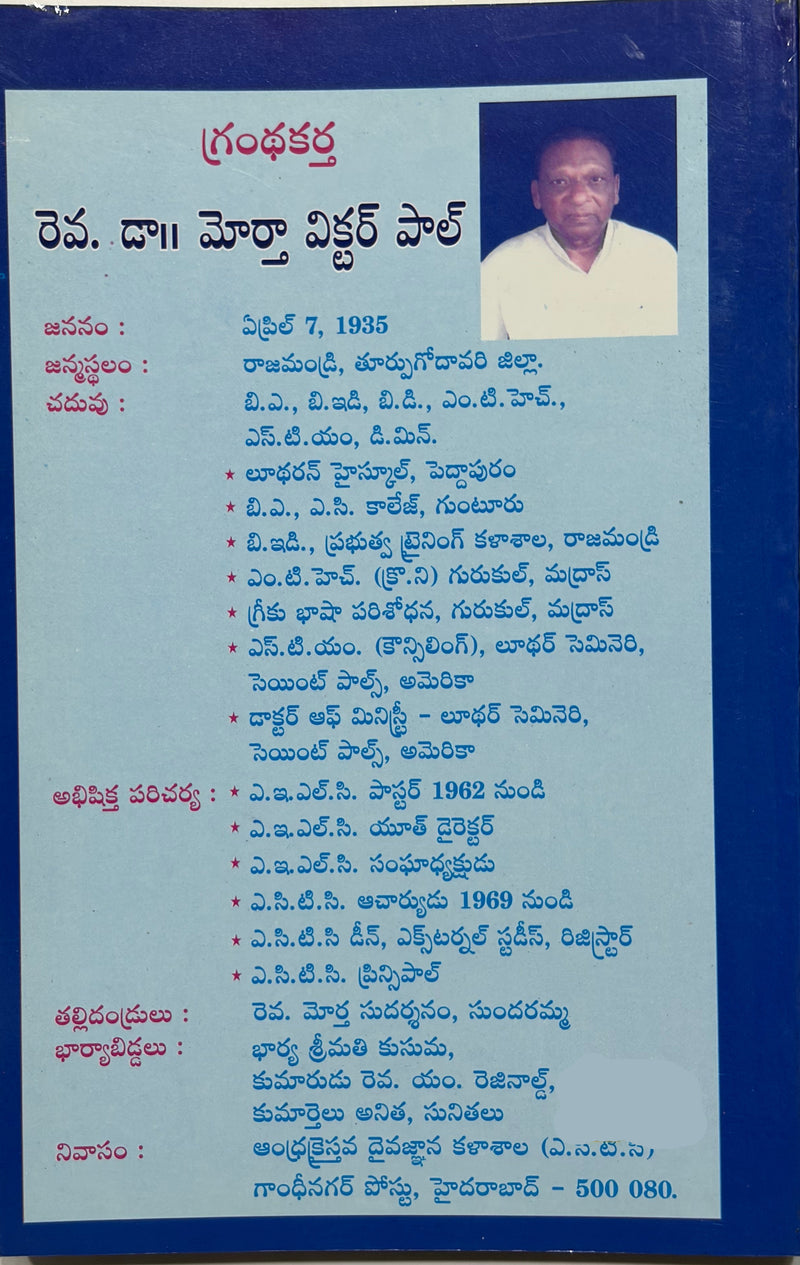 గ్రంథకర్త
రెవ. డా॥ మోర్తా విక్టర్ పాల్
జననం : ఏప్రిల్ 7, 1935
జన్మస్థలం : రాజమండ్రి, తూర్పుగోదావరి జిల్లా.
చదువు : బి.ఎ., బి.ఇడి, బి.డి., ఎం.టి.హెచ్.,
ఎస్.టి.యం, డి.మిన్.
★ లూథరన్ హైస్కూల్, పెద్దాపురం
★ బి.ఎ., ఎ.సి. కాలేజ్, గుంటూరు
★ బి.ఇడి., ప్రభుత్వ ట్రైనింగ్ కళాశాల, రాజమండ్రి
★ ఎం.టి.హెచ్. (క్రొ.ని) గురుకుల్, మద్రాస్
★ గ్రీకు భాషా పరిశోధన, గురుకుల్, మద్రాస్
★ ఎస్.టి.యం. (కౌన్సిలింగ్), లూథర్ సెమినెరి,
సెయింట్ పాల్స్, అమెరికా
★ డాక్టర్ ఆఫ్ మినిస్ట్రీ - లూథర్ సెమినెరి,
సెయింట్ పాల్స్, అమెరికా
అభిషిక్త పరిచర్య : ★ ఎ.ఇ.ఎల్.సి. పాస్టర్ 1962 నుండి
★ ఎ.ఇ.ఎల్.సి. యూత్ డైరెక్టర్
★ ఎ.ఇ.ఎల్.సి. సంఘాధ్యక్షుడు
★ ఎ.సి.టి.సి. ఆచార్యుడు 1969 నుండి
★ ఎ.సి.టి.సి డీన్, ఎక్స్‌టర్నల్ స్టడీస్, రిజిస్ట్రార్
★ ఎ.సి.టి.సి. ప్రిన్సిపాల్
తల్లిదండ్రులు : రెవ. మోర్త సుదర్శనం, సుందరమ్మ
భార్యాబిడ్డలు : భార్య శ్రీమతి కుసుమ,
కుమారుడు రెవ. యం. రెజినాల్డ్,
కుమార్తెలు అనిత, సునితలు
నివాసం : ఆంధ్రక్రైస్తవ దైవజ్ఞాన కళాశాల (ఎ.సి.టి.సి)
గాంధీనగర్ పోస్టు, హైదరాబాద్ - 500 080.